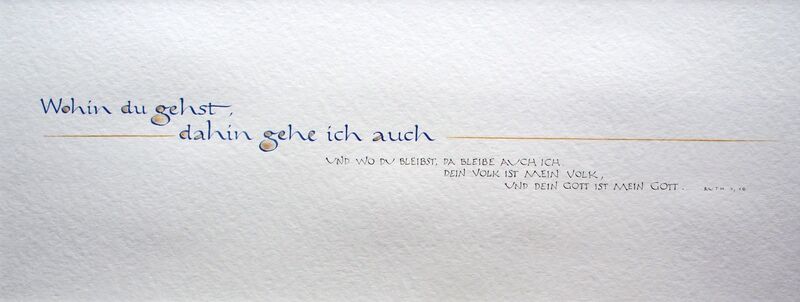 Wohin du gehst,
dahin gehe ich auch
UND WO DU BLEIBST, DA BLEIBE AUCH ICH.
DEIN VOLK IST MEIN VOLK,
UND DEIN GOTT IST MEIN GOTT. RUTH 1,16